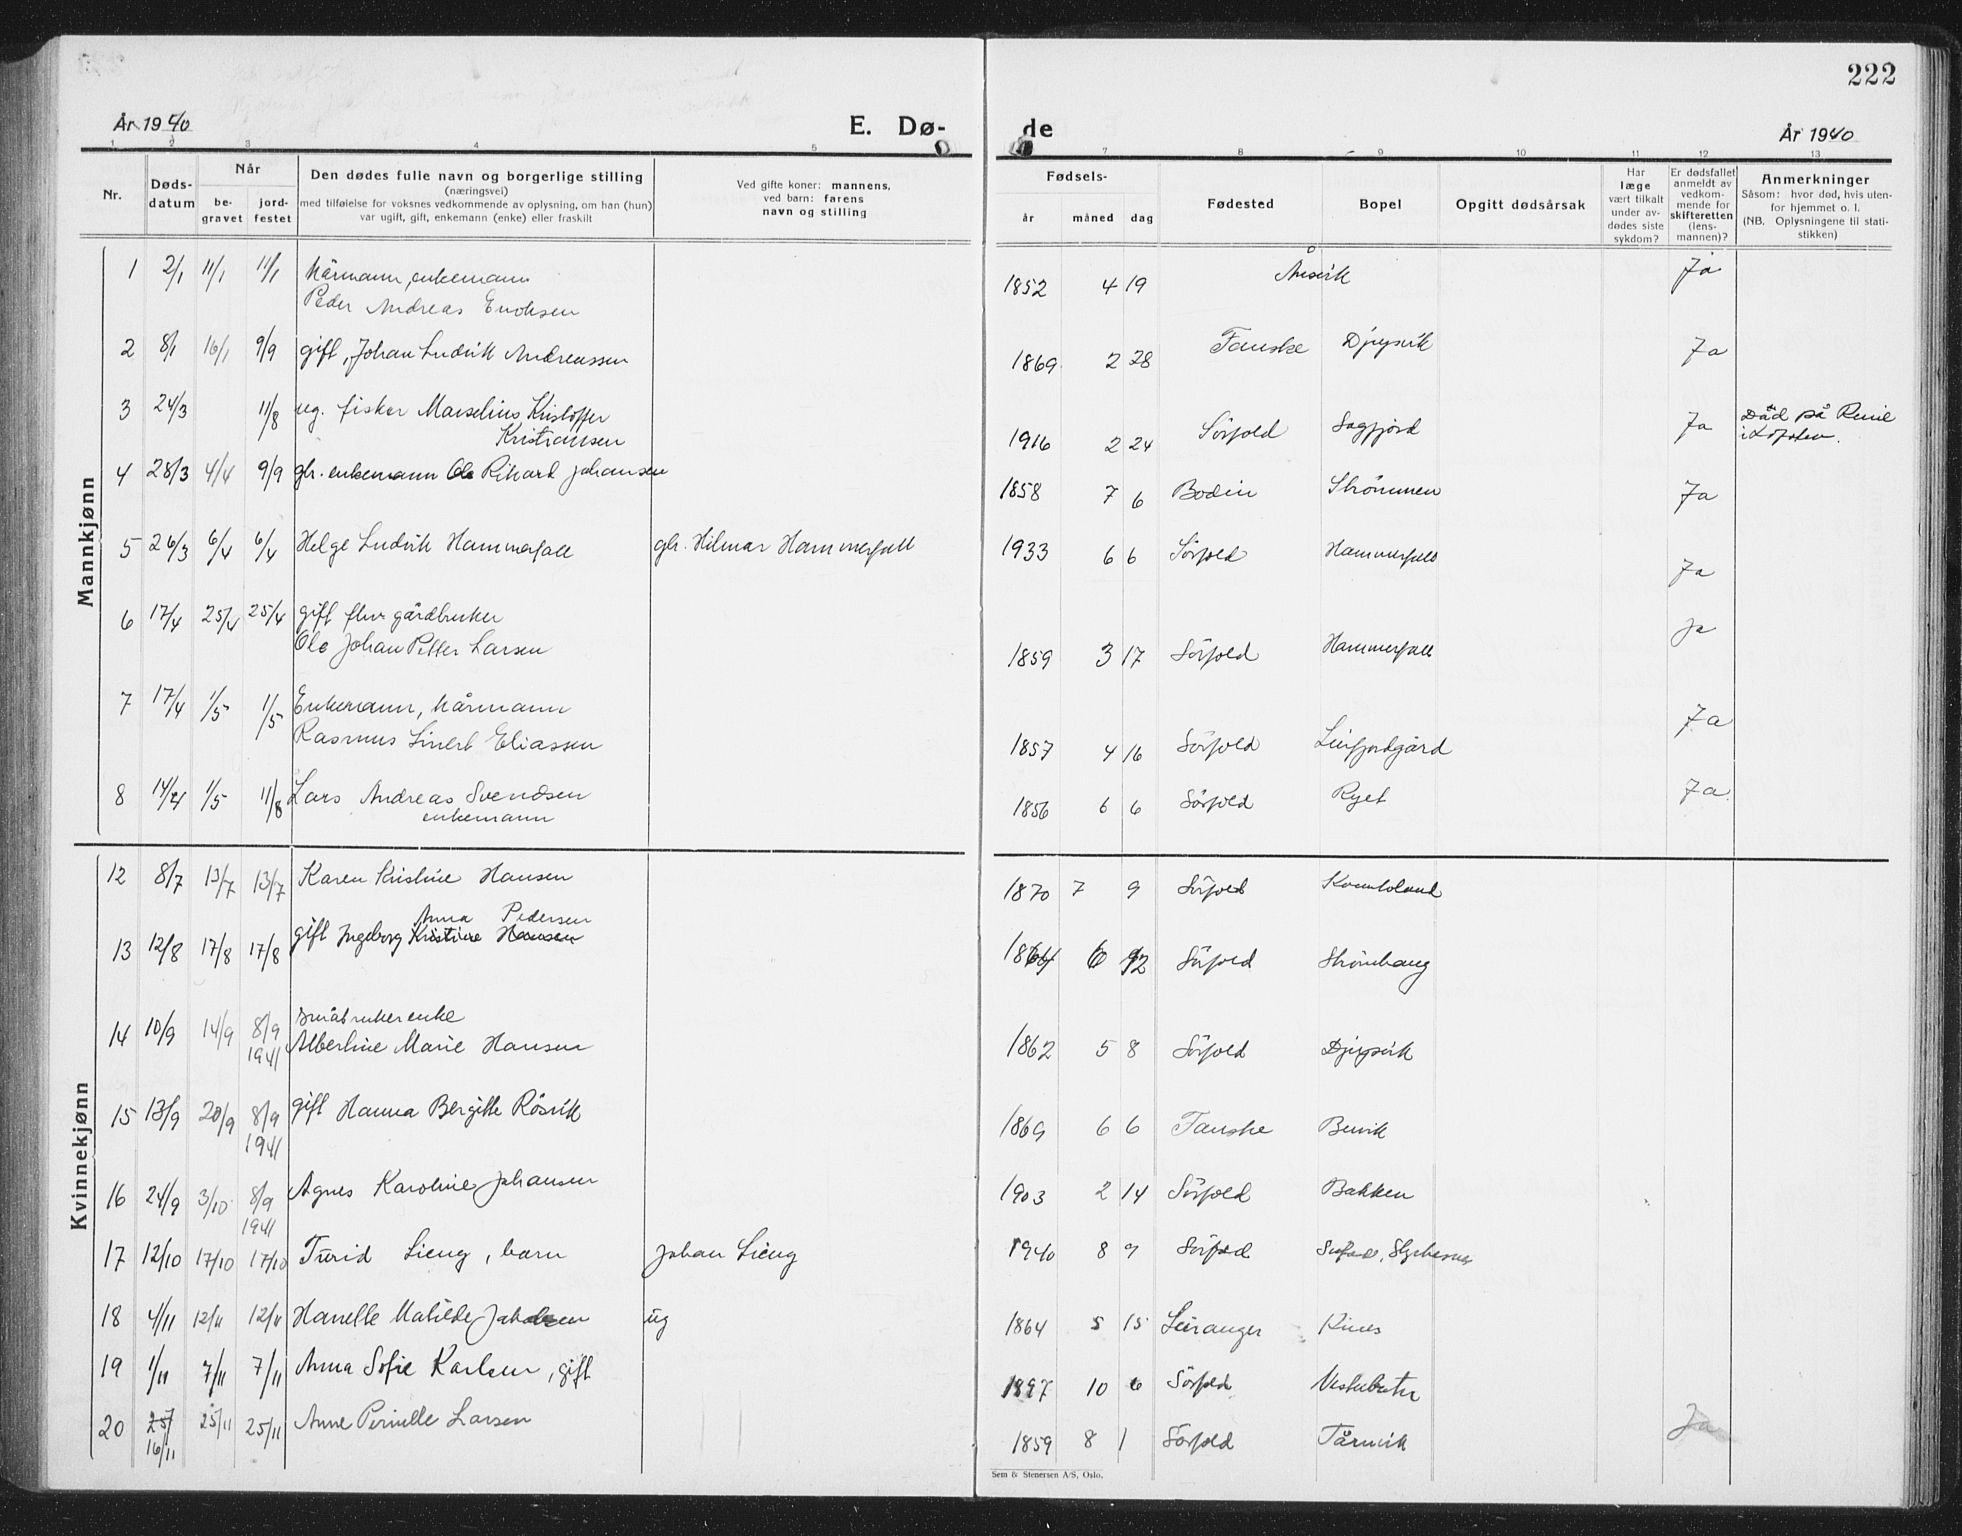 222
År 1940 E. Dø- de År 1940
1 2 3 4 5 7 8 9 10 11 12 13
Nr. Døds-datum Når be-gravet jord-festet
Den dødes fulle navn og borgerlige stilling
(næringsvei)
med tilføielse for voksnes vedkommende av oplysning, om han (hun)
var ugift, gift, enkemann (enke) eller fraskilt
Ved gifte koner: mannens,
ved barn: farens
navn og stilling
Fødsels- år måned dag
Fødested Bopel Opgitt dødsårsak
Har læge vært tilkalt under av-dødes siste sykdom?
Er dødsfallet anmeldt av vedkom-mende for skifteretten (lens-mannen)?
Anmerkninger
Såsom: hvor død, hvis uten-
for hjemmet o. l.
(NB. Oplysningene til stati-
stikken)
Mannkjønn
1 2/1 11/1 11/1 kårmann, enkemann
Peder Andreas Enoksen 1852 4 19 Ånsvik Ja
2 8/1 16/1 9/9 gift, Johan Ludvik Andreassen 1869 2 28 Fauske Djupvik Ja
3 24/3 11/8 ug. fisker Marselius Kristoffer
Kristiansen 1916 2 24 Sörfold Sagfjord Ja Död på Reine
i Lofoten.
4 28/3 4/4 9/9 gbr. enkemann Ole Rikard Johansen 1858 7 6 Bodin Strömmen Ja
5 26/3 6/4 6/4 Helge Ludvik Hammerfall gbr. Hilmar Hammerfall 1933 6 6 Sörfold Hammerfall Ja
6 17/4 25/4 25/4 gift fhv. gårdbruker
Ole Johan Petter Larsen 1859 3 17 Sörfold Hammerfall Ja
7 17/4 1/5 1/5 Enkemann, kårmann
Rasmus Linert Eliassen 1857 4 16 Sörfold Leirfjordgård Ja
8 14/4 1/5 11/8 Lars Andreas Svendsen
enkemann 1856 6 6 Sörfold Ryet Ja
Kvinnekjønn
12 8/7 13/7 13/7 Karen Kristine Hansen 1870 7 9 Sörfold Kvantoland
Anna Pedersen
13 12/8 17/8 17/8 gift Ingeborg Kristine Hansen 1864 6 12 Sörfold Strömhaug
småbrukerenke
14 10/9 14/9 8/9 1941 Albertine Marie Hansen 1862 5 8 Sörfold Djupvik
15 13/9 20/9 8/9 1941 gift Hanna Bergitte Rösvik 1869 6 6 Fauske Benvik
16 24/9 3/10 8/9 1941 Agnes Karoline Johansen 1903 2 14 Sörfold Bakken
17 12/10 17/10 17/10 Turid Lieng, barn Johan Lieng 1940 8 9 Sörfold Sörfold, Styrkesnes
18 4/11 12/11 12/11 Hanelle Matilde Jakobsen ug 1864 5 15 Leiranger Kines
19 1/11 7/11 7/11 Anna Sofie Karlsen, gift 1897 10 6 Sörfold
20 25/ 16/11 25/11 25/11 Anne Pernille Larsen 1859 8 1 Sörfold Tårnvik Ja
Sem & Stenersen A/S, Oslo.